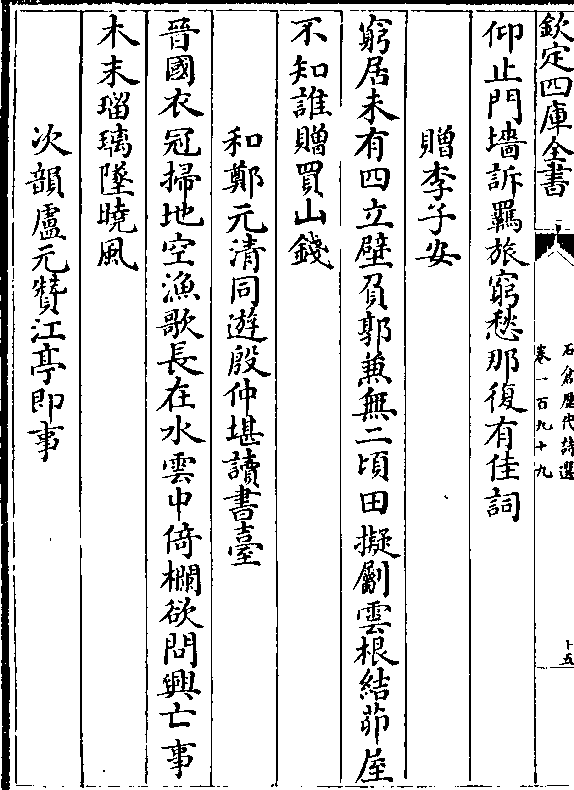 欽定四庫全書
石倉歷代詩選
卷一百九十九
十五
仰止門墻訴羈旅窮愁那復有佳詞
贈李子安
窮居未有四立壁負郭兼無二頃田擬斸雲根結茆屋
不知誰贈買山錢
和鄭元清同遊殷仲堪讀書臺
晉國衣冠掃地空漁歌長在水雲中倚欄欲問興亡事
木末瑠璃墜曉風
次韻盧元贊江亭即事